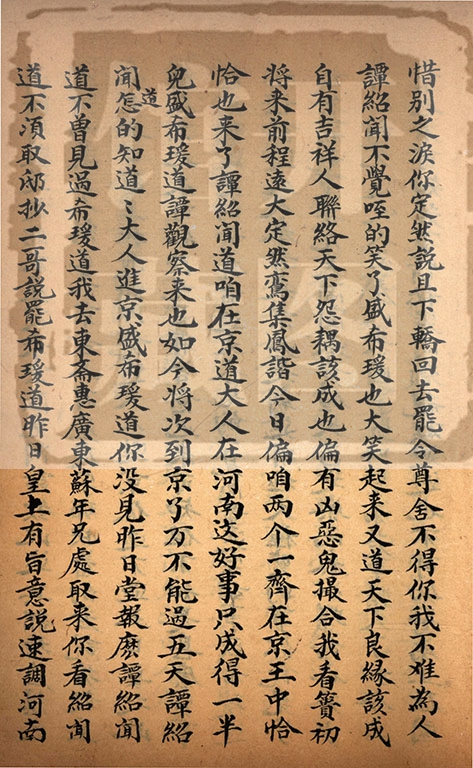 惜别之淚你定然説且下轎回去罷令尊舍不得你我不难為人
譚紹聞不覺咥的笑了盛希瑗也大笑起来又道天下良緣該成
自有吉祥人聯絡天下怨耦該成也偏有凶惡鬼撮合我看簣初
将来前程遠大定然鸞集鳳諧今日偏咱两个一齊在京王中恰
恰也来了譚紹聞道咱在京道大人在河南这好事只成得一半
兒盛希瑗道譚觀察来也如今将次到京了万不能過五天譚紹
聞道怎的知道〻大人進京盛希瑗道你没見昨日堂報麽譚紹聞
道不曽見過希瑗道我去東斋惠廣東蘇年兄處取来你看紹聞
道不湏取邸抄二哥説罷希瑗道昨日皇上有旨意説速調河南